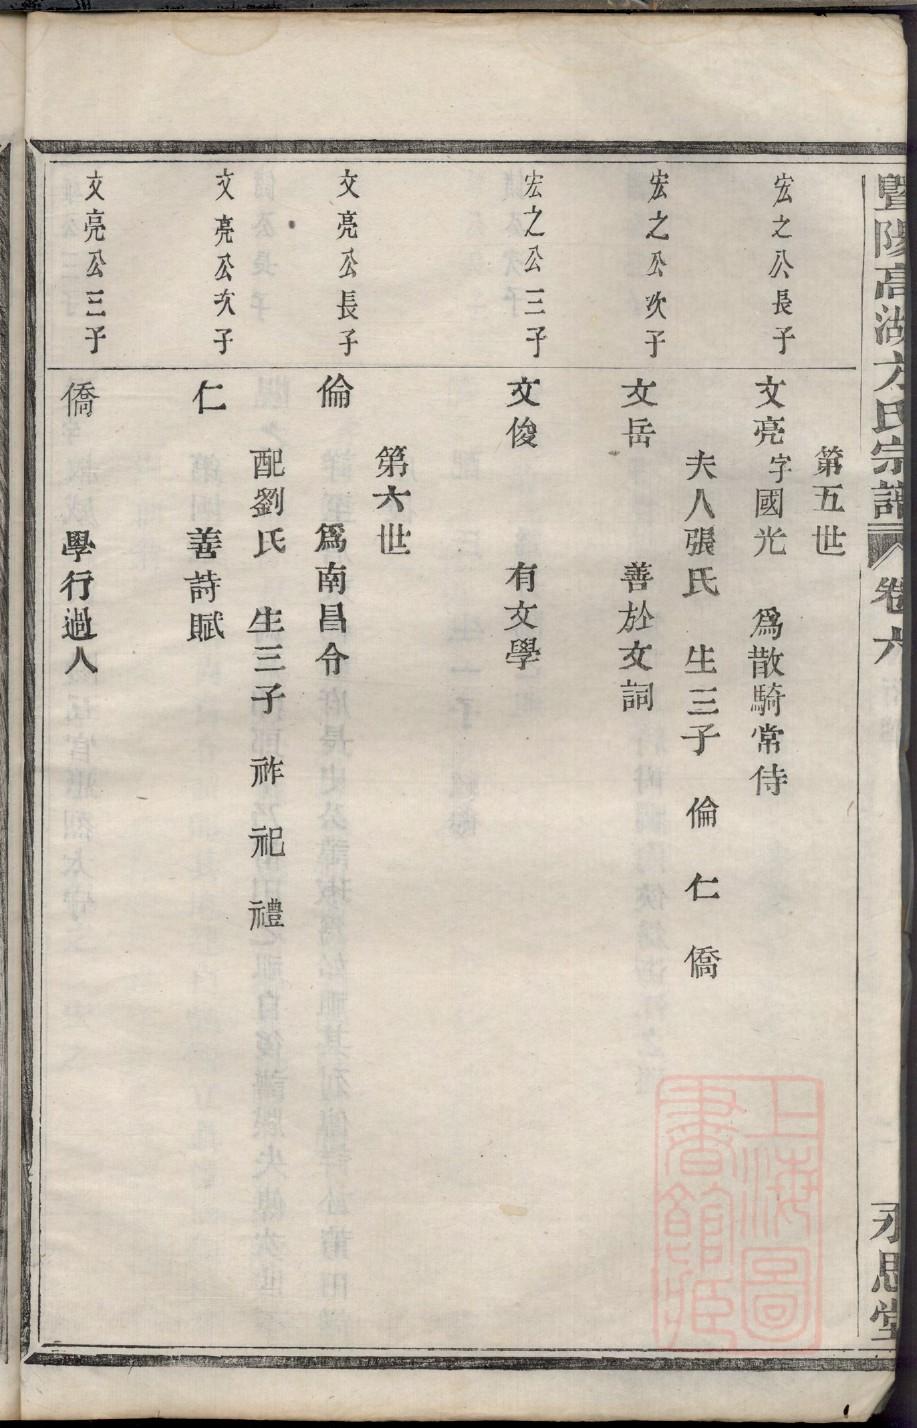 暨陽高湖方氏宗譜 卷六 永思堂
第五世
宏之公長子
文亮字國光 爲散騎常侍
夫人張氏 生三子 倫 仁 僑
宏之公次子
文岳 善於文詞
宏之公三子
文俊 有文學
第六世
文亮公長子
倫 爲南昌令
配劉氏 生三子 祚 祀 禮
文亮公次子
仁 善詩賦
文亮公三子
僑 學行過人
上海圖
書館藏